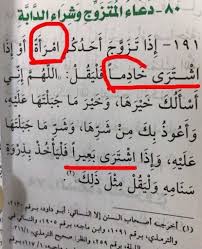 ٨٠- دعاء المتزوج وشراء الدابة
١٩١- إذا تزوج أحدكم امرأة أو إذا
اشترى خادما فليقل: ((اللهم إني
أسألك خيرها، وخير ما جبلتها عليه،
وأعوذ بك من شرها، وشر ما جبلتها
عليه، وإذا اشترى بعيرا فليأخذ بذروة
سنامه وليقل مثل ذلك)) (١)
(١) أخرجه أصحاب السنن إلا النسائي